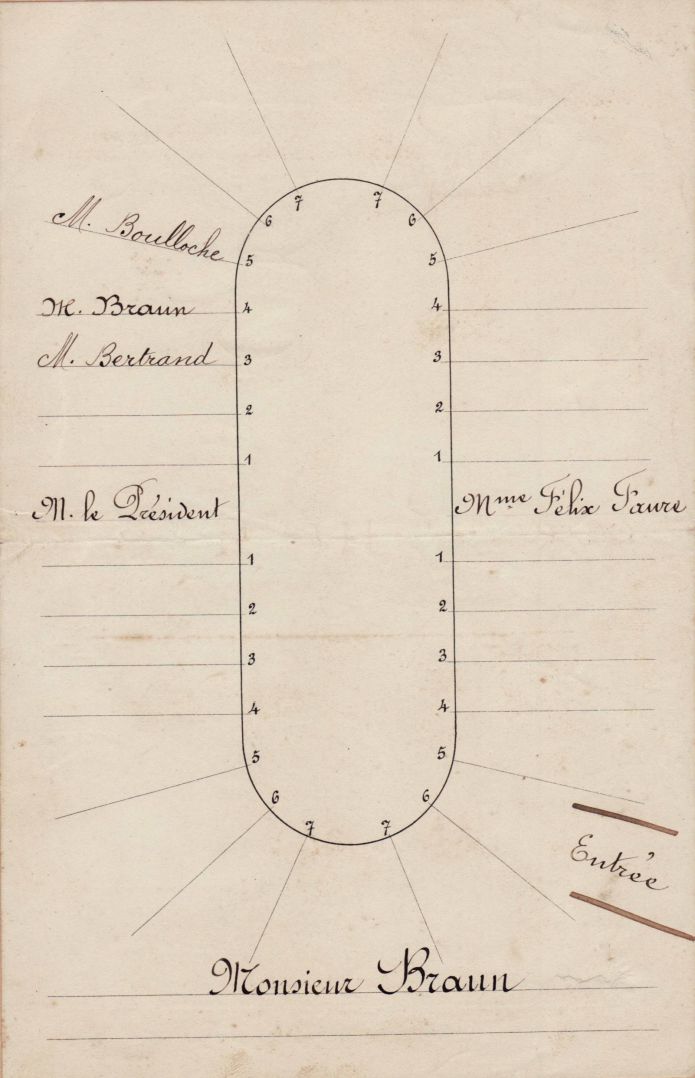 7 7
6 6
M. Boulloche 5 5
M. Braun 4 4
M. Bertrand 3 3
2 2
1 1
M. le Président Mme Félix Faure
1 1
2 2
3 3
4 4
5 5
6 6
7 7
Entrée
Monsieur Braun